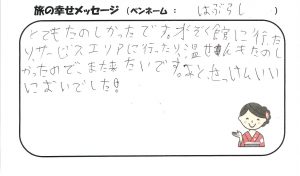 旅の幸せメッセージ （ペンネーム： はぶらし ）
とてもたのしかったです。水ぞく館に行った
り、サービスエリアに行ったり、温せんもたのし
かったので、また来たいです。あと、せっけんいい
においでした!